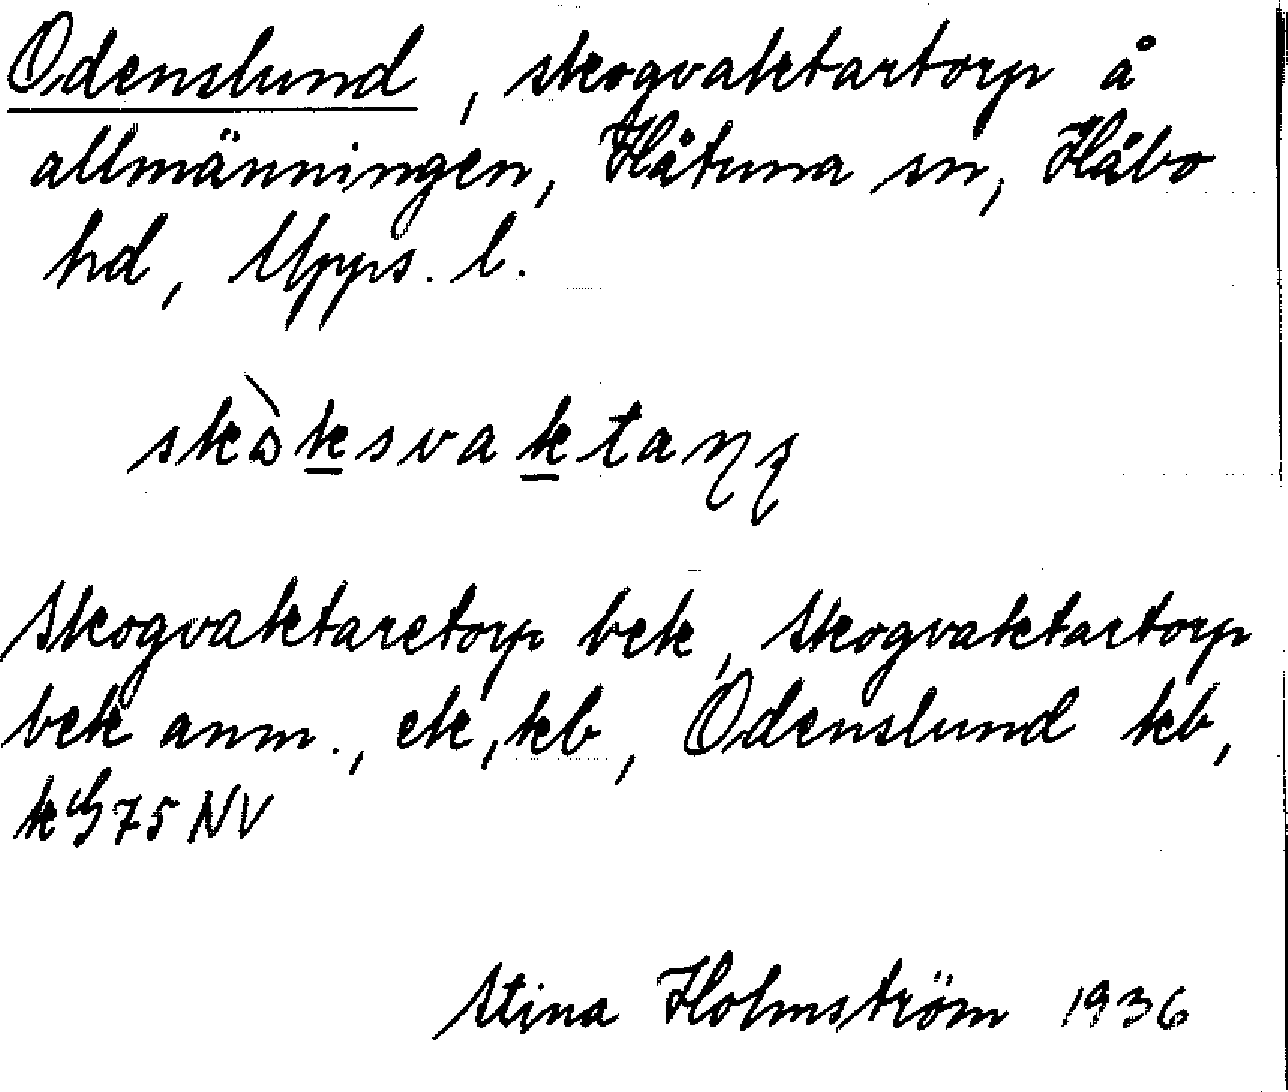 Odenslund, skogvaktartorp å
allmänningen, Håtuna sn, Håbo
hd, Upps. l.
Skogvaktaretorp bek, Skogvaktartorp
bek anm., ek, kb, Odenslund kb,
kG75 NV
Stina Holmström 1936